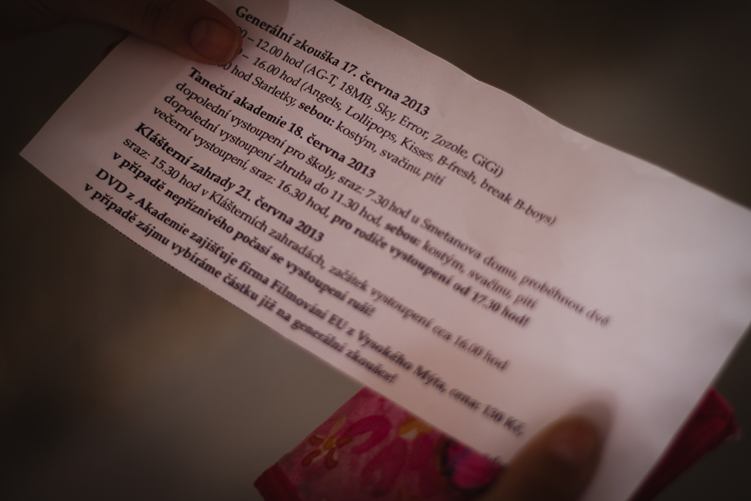 Generální zkouška 17. června 2013
– 12.00 hod (AG-T, 18MB, Sky, Error, Zozole, GiGi)
– 16.00 hod (Angels, Lollipops, Kisses, B-fresh, break B-boys)
hod Starletky, sebou: kostým, svačinu, pití
Taneční akademie 18. června 2013
dopolední vystoupení pro školy, sraz: 7.30 hod u Smetanova domu, proběhnou dvě
dopolední vystoupení zhruba do 11.30 hod, sebou: kostým, svačinu, pití
večerní vystoupení, sraz: 16.30 hod, pro rodiče vystoupení od 17.30 hod!
Klášterní zahrady 21. června 2013
sraz: 15.30 hod v Klášterních zahradách, začátek vystoupení cca 16.00 hod
v případě nepříznivého počasí se vystoupení ruší!
DVD z Akademie zajišťuje firma Filmování EU z Vysokého Mýta, cena: 130 Kč,
v případě zájmu vybíráme částku již na generální zkoušce!